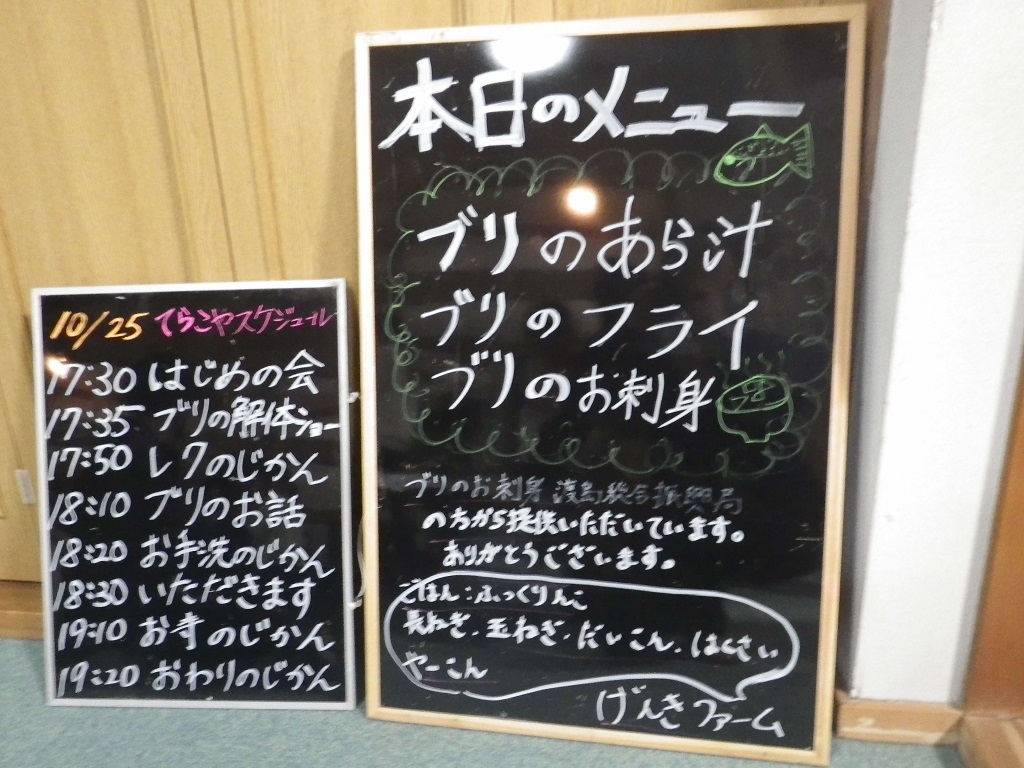 10/25 てらこやスケジュール
17:30 はじめの会
17:35 ブリの解体ショー
17:50 レクのじかん
18:10 ブリのお話
18:20 お手洗のじかん
18:30 いただきます
19:10 お寺のじかん
19:20 おわりのじかん
本日のメニュー
ブリのあら汁
ブリのフライ
ブリのお刺身
ブリのお刺身 渡島総合振興局
の方から提供いただいています。
ありがとうございます。
ごはん:ふっくりんこ
長ねぎ、玉ねぎ、だいこん、はくさい
やーこん
げんきファーム